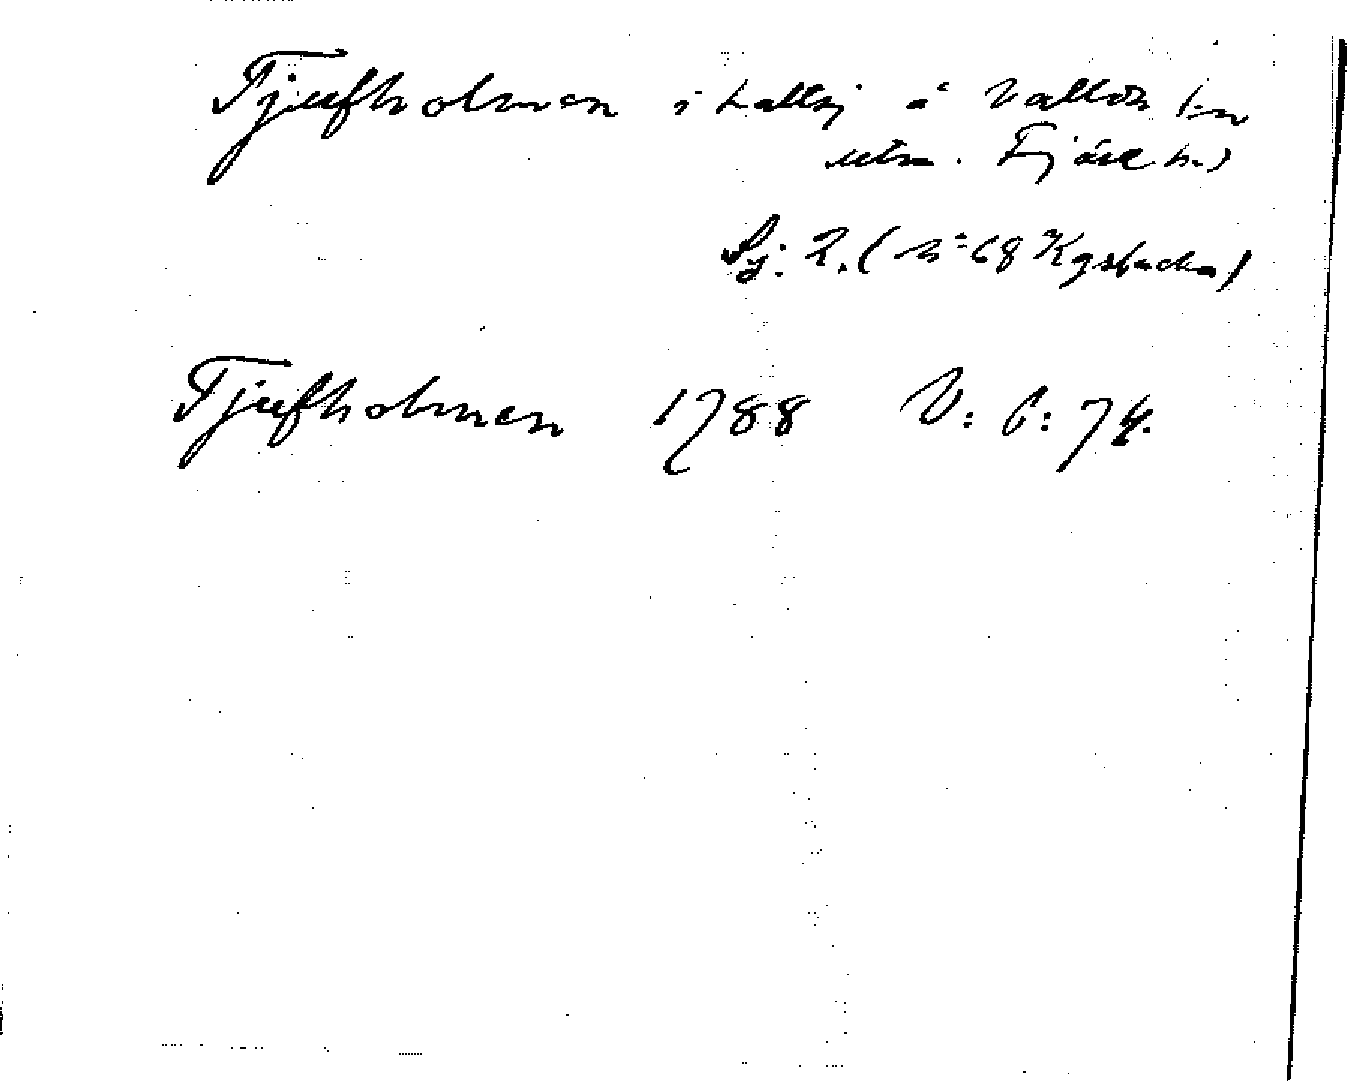 Tjufholmen i hallsj å Vallda sn
utm. Fjäre hd)
Sj. R. (n:o 68 Kgsbacka)
Tjufholmen 1788 V: 6: 74.